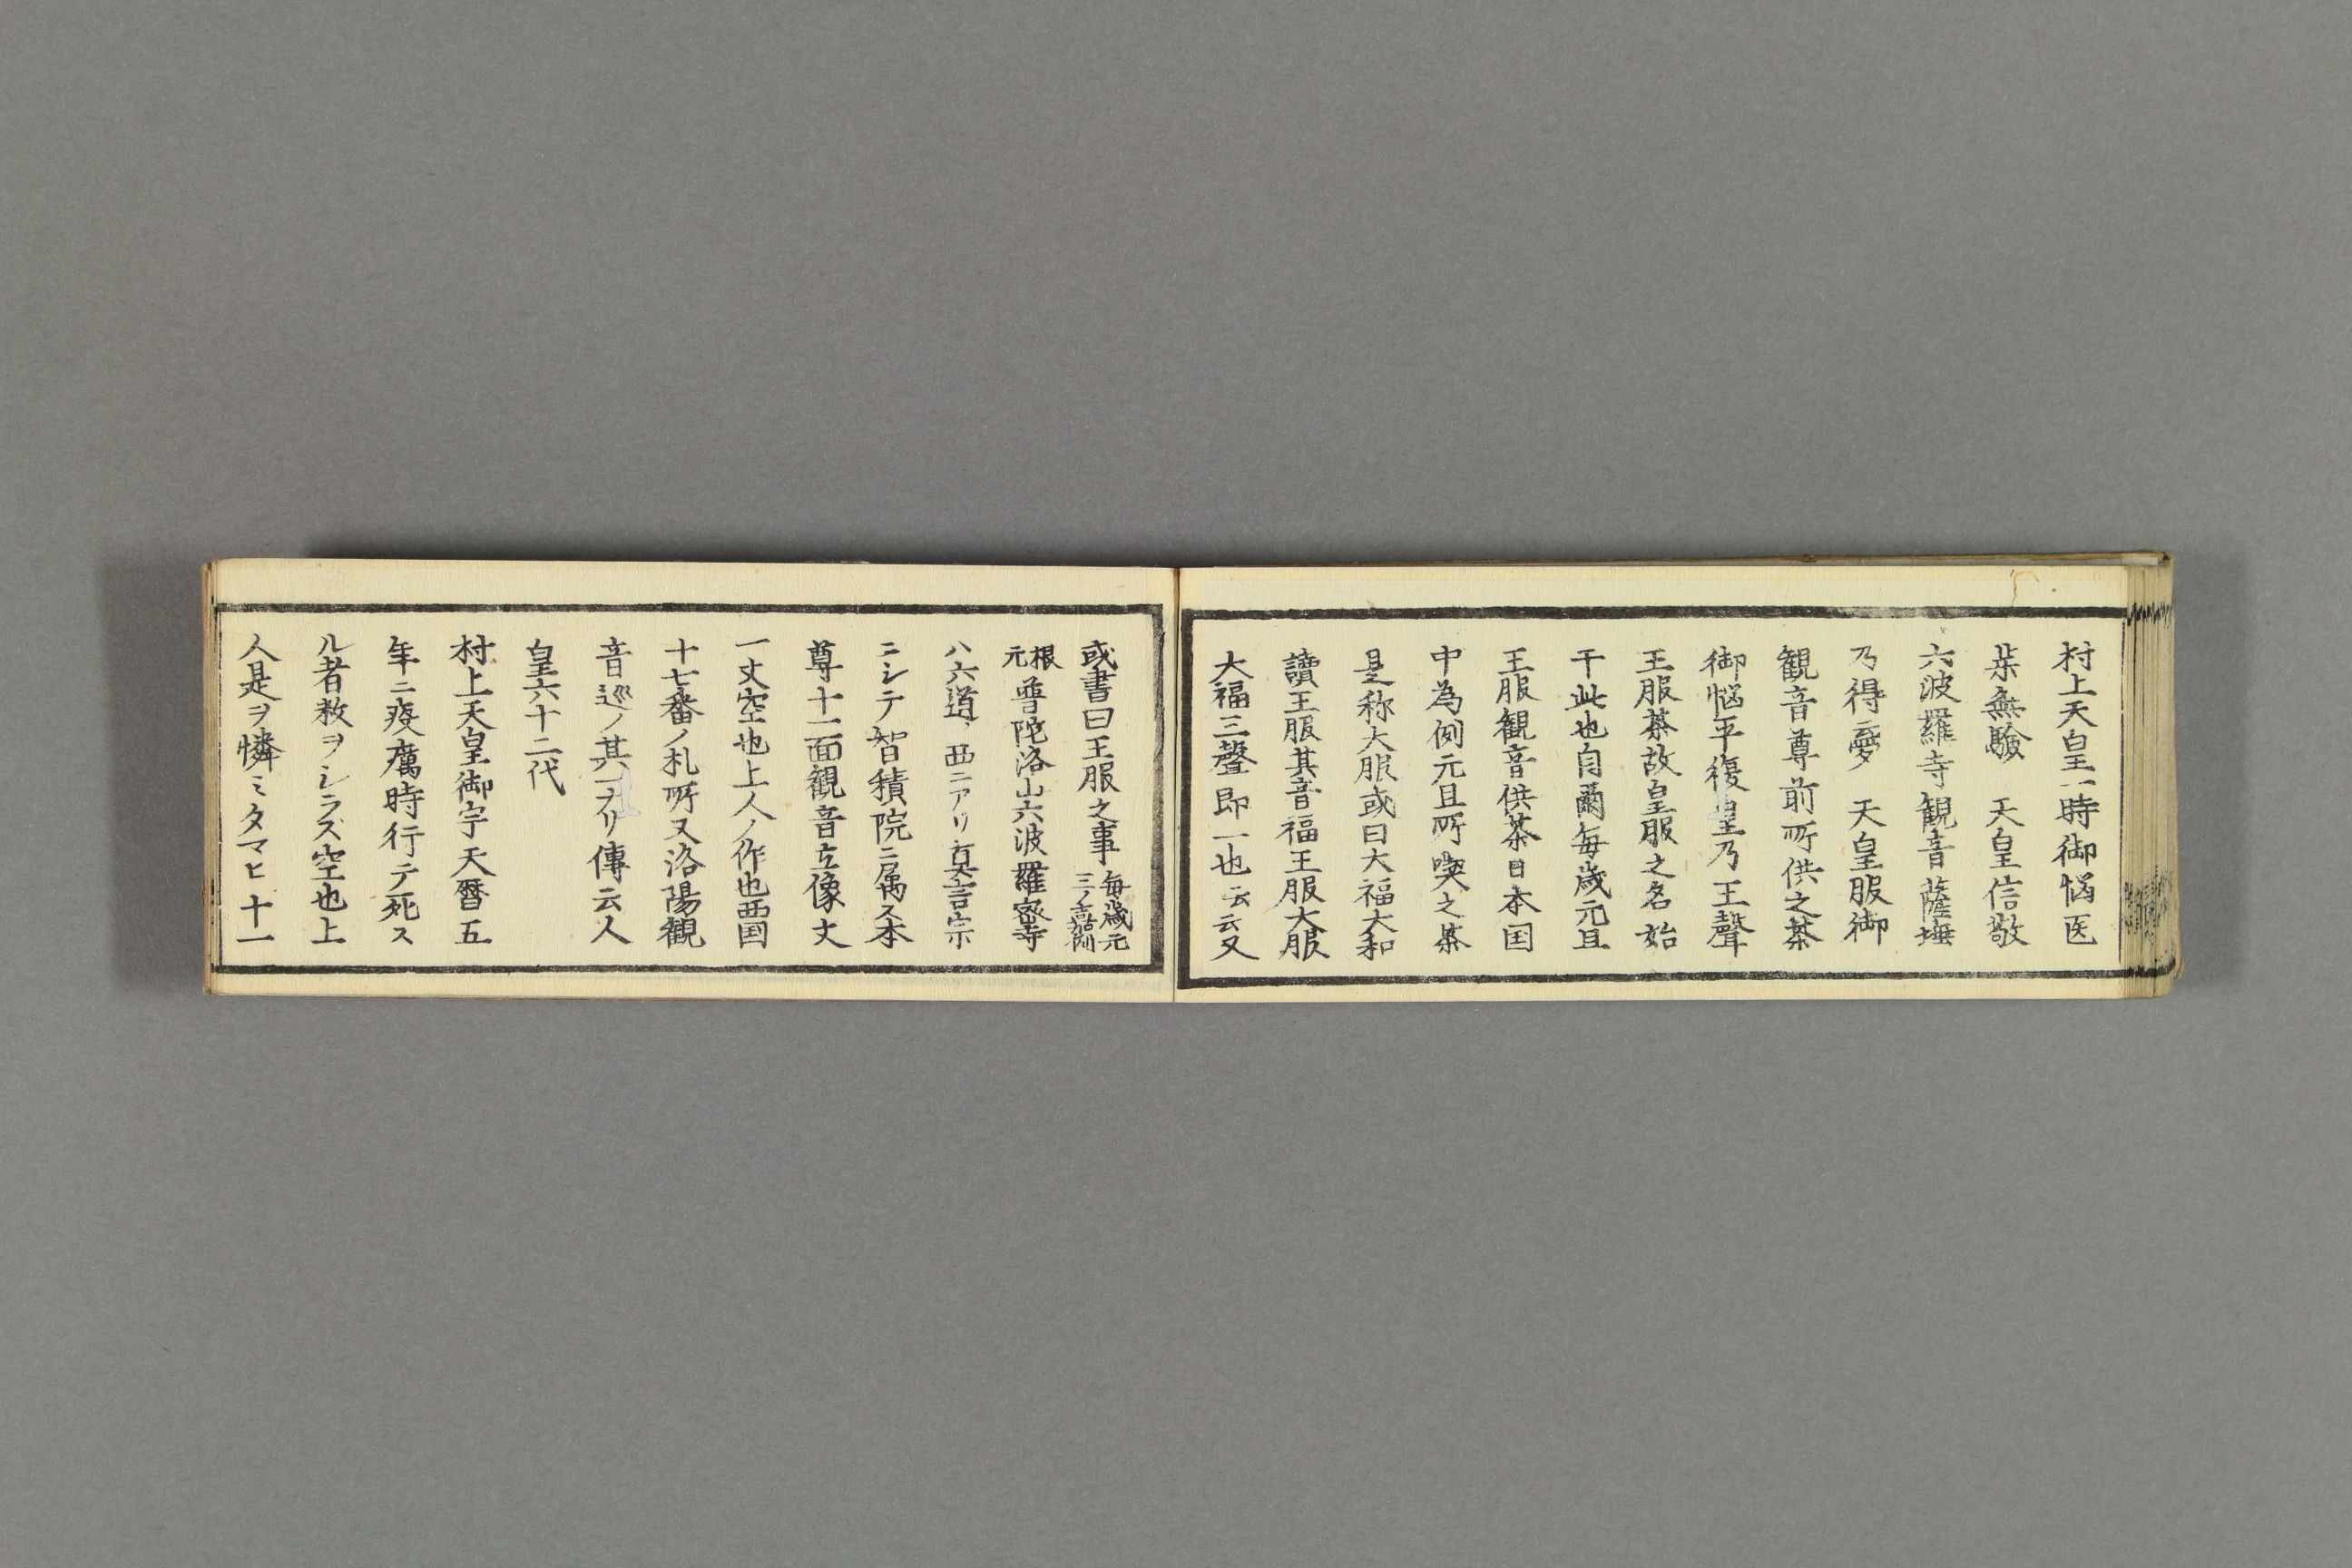 村上天皇一時御悩医
薬無驗　天皇信敬
六波羅寺観音薩埵
乃得㚑夢　天皇服御
観音尊前所供之茶
御悩平復皇乃王聲
王服茶故皇服之名始
于此也自爾毎歳元旦
王服観音供茶日本国
中為例元旦所喫之茶
是称大服或曰大福大和
讀王服其音福王服大服
大福三聲即一也云云又
或書曰王服之事 毎歳元
三ノ嘉例
根元 普陀洛山六波羅密寺
ハ六道ノ西ニアリ真言宗
ニシテ智積院ニ属ス本
尊十一面観音立像丈
一丈空也上人ノ作也西国
十七番ノ札所又洛陽観
音巡ノ其一ナリ傳云人
皇六十二代
村上天皇御宇天暦五
年ニ疫癘時行テ死ス
ル者数ヲシラズ空也上
人是ヲ憐ミタマヒ十一